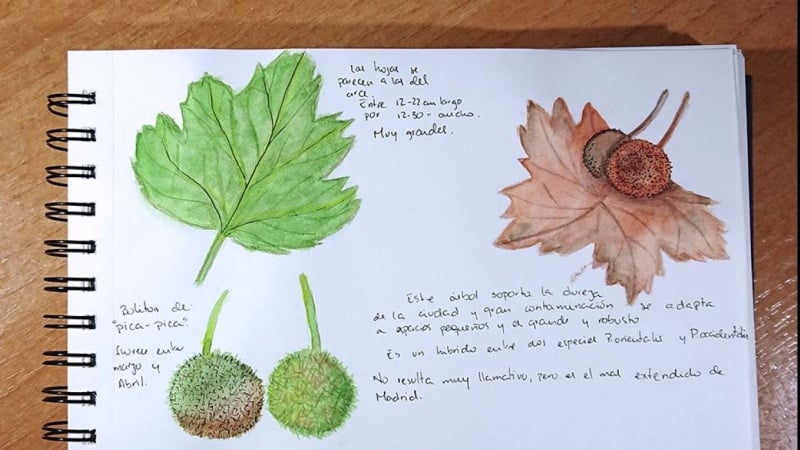 Las hojas se
parecen a las del
arce.
Entre 12-22 cm largo
por 12-30- ancho.
Muy grandes.
Bolitas de
"pica-pica".
Florece entre
marzo y
Abril.
Este árbol soporta la dureza
de la ciudad y gran contaminación se adapta
a espacios pequeños y es grande y robusto
Es un híbrido entre dos especies P.orientalis y P.occidentalis
No resulta muy llamativo, pero es el mas extendido de
Madrid.